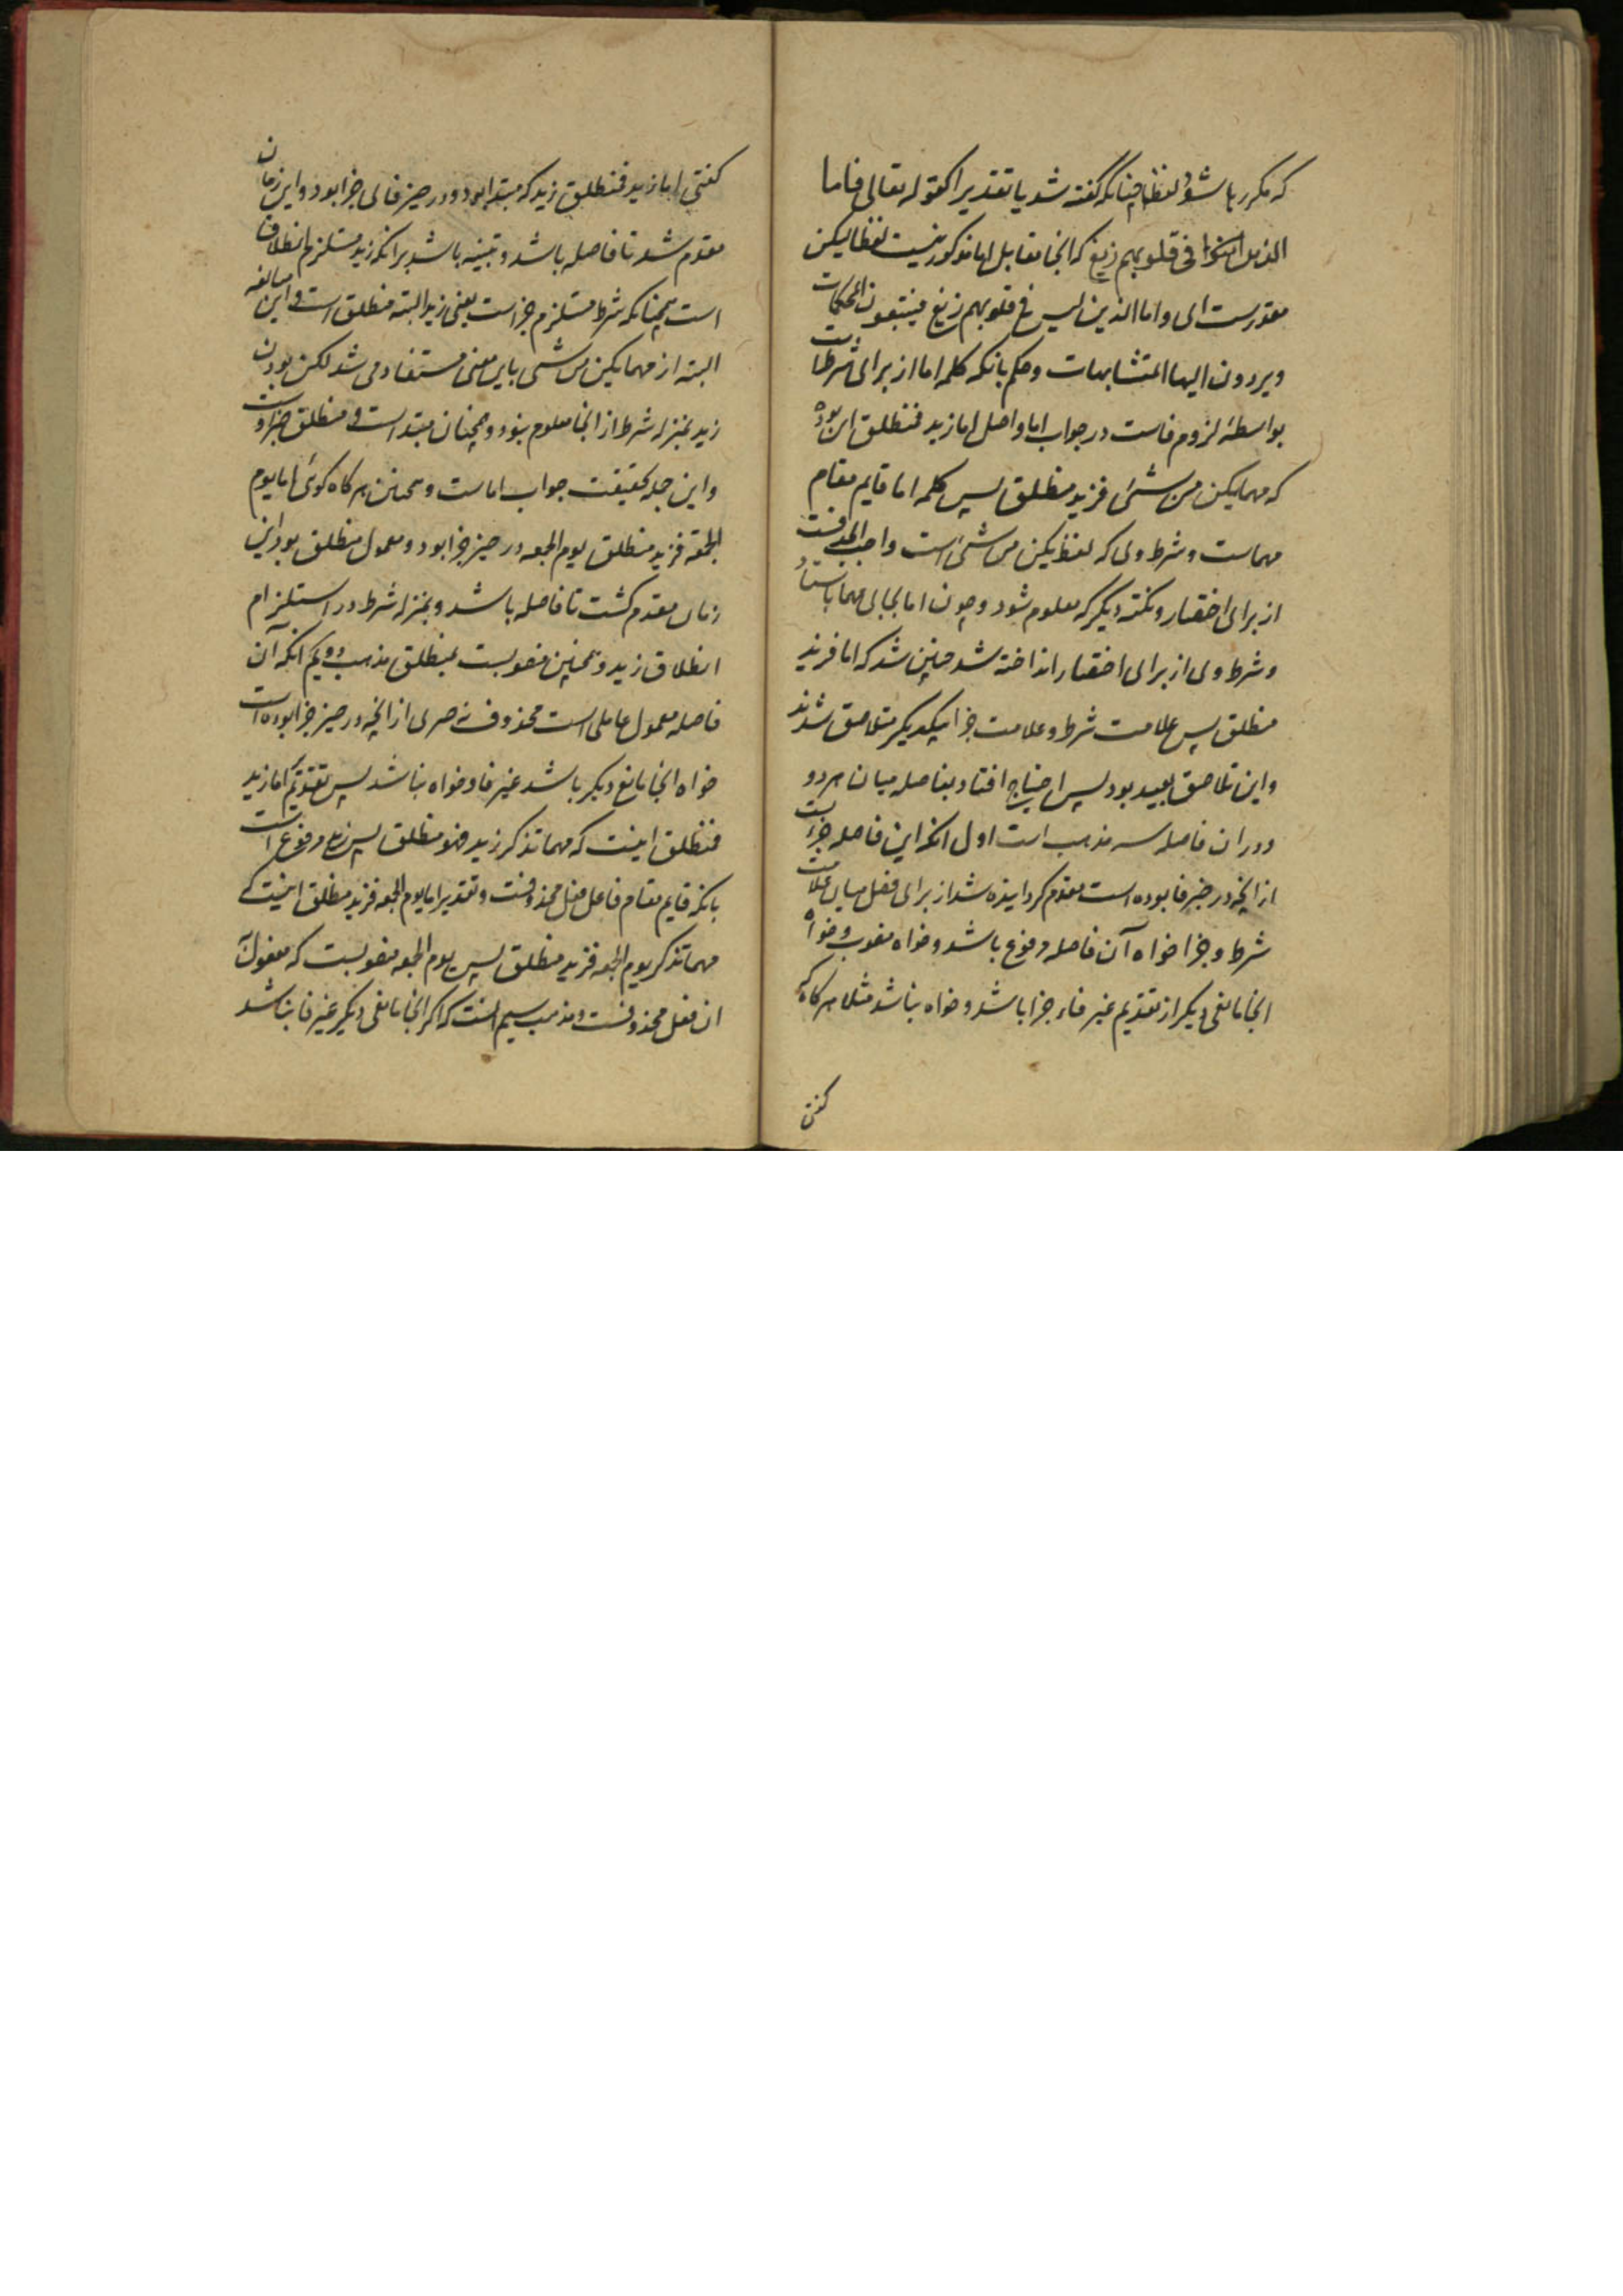 که مکرر باشد و لفظا چنانکه گفته شد یا تقدیرا کقوله تعالی فاما
الذین فی قلوبهم زیغ که اینجا مقابل اما مذکور نیست لفظا لیکن
مقدرست ای واما الذین لیس فی قلوبهم زیغ فیتبعون المحکمات
ویردون الیها المتشابهات وحکم بانکه کلمه اما از برای شرطست
بواسطه لزوم فاست در جواب اما واصل اما زید فمنطلق این بوده
که مهما یکن من شئ فزید منطلق پس کلمه اما قایم مقام
مهماست وشرط وی که لفظ یکن من شئ است واجب الحذفست
از برای اختصار ونکته دیگر که معلوم شود وچون اما بجای مهما باستاد
وشرط وی از برای اختصار انداخته شد چنین شد که اما فزید
منطلق پس علامت شرط وعلامت جزا بیکدیگر متلاصق شدند
واین تلاصق بعید بود پس احتیاج افتاد بفاصله میان هر دو
ودر ان فاصله سه مذهب است اول انکه این فاصله جزیست
از انچه در حیز فا بوده است مقدم گردانیده شد از برای فصل میان علامت
شرط وجزا خواه آن فاصله مرفوع باشد وخواه منصوب وخواه
اینجا مانعی دیگر از تقدیم غیر فاء جزا باشد وخواه نباشد مثلا هرگاه که
گفتی
گفتی اما زید فمنطلق زید که مبتدا بود ودر حیز فای جزا بود واین زمان
مقدم شد تا فاصله باشد وتنبیه باشد برانکه زید مستلزم انطلاق
است همچنانکه شرط مستلزم جزاست یعنی زید البته منطلق است واین مبالغه
البته از مهما یکن من شئ باین معنی مستفاد می شد لکن بودن
زید بمنزله شرط از انجا معلوم نبود وهمچنان مبتداست ومنطلق خبر اوست
واین جمله بحقیقت جواب اماست وهمچنین هرگاه گوئی اما یوم
الجمعة فزید منطلق یوم الجمعه در حیز جزا بود ومعمول منطلق بود این
زمان مقدم گشت تا فاصله باشد وبمنزله شرط در استلزام
انطلاق زید وهمچنین منصوبست بمنطلق مذهب دویم انکه آن
فاصله معمول عاملی است محذوف نه جزی از انچه در حیز جزا بوده است
خواه اینجا مانع دیگر باشد غیر فا وخواه نباشد پس تقدیر اما زید
فمنطلق اینست که مهما تذکر زید فهو منطلق پس زید مرفوع است
بانکه قایم مقام فاعل فعل محذوفست وتقدیر اما یوم الجمعه فزید منطلق اینست که
مهما تذکر یوم الجمعه فزید منطلق پس یوم الجمعه منصوبست که مفعول
ان فعل محذوفست ومذهب سیم انست که اگر اینجا مانعی دیگر غیر فا نباشد